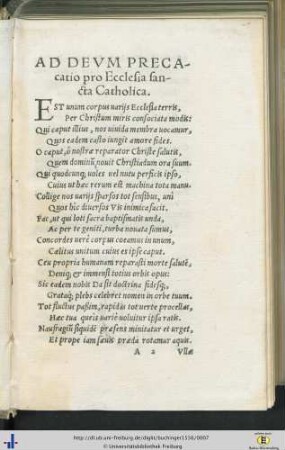 AD DEVM PRECA-
catio pro Ecclesia san-
cta Catholica.
EST unum corpus uarijs Ecclesia terris,
Per Christum miris consociata modis:
Qui caput illius, nos uiuida membra uocamur,
Quos eadem casto iungit amore fides.
O caput, ô nostræ reparator Christe salutis,
Quem dominũ nouit Christiadum ora suum.
Qui quodcunq; uoles uel nutu perficis ipso,
Cuius ut hæc rerum est machina tota manu.
Collige nos uarijs sparsos tot sensibus, uni
Quos hic diuersos Vis inimica facit.
Fac, ut qui loti sacra baptismatis unda,
Ac per te geniti, turba nouata sumus,
Concordes uerè corpus coeamus in unum,
Cælitus unitum cuius es ipse caput.
Ceu propria humanam reparasti morte salutẽ,
Deniq; & immensi totius orbis opus:
Sic eadem nobis Da sit doctrina fidesq;,
Grataq; plebs celebret nomen in orbe tuum.
Tot fluctus passim, rapidæ tot uerte procellas,
Hæc tua queis uariè uoluitur ipsa ratis.
Naufragiũ siquidẽ præsens minitatur et urget,
Et prope iam sæuis præda rotamur aquis.
A 2 Vllæ
http://dl.ub.uni-freiburg.de/diglit/buchinger1556/0007
© Universitätsbibliothek Freiburg